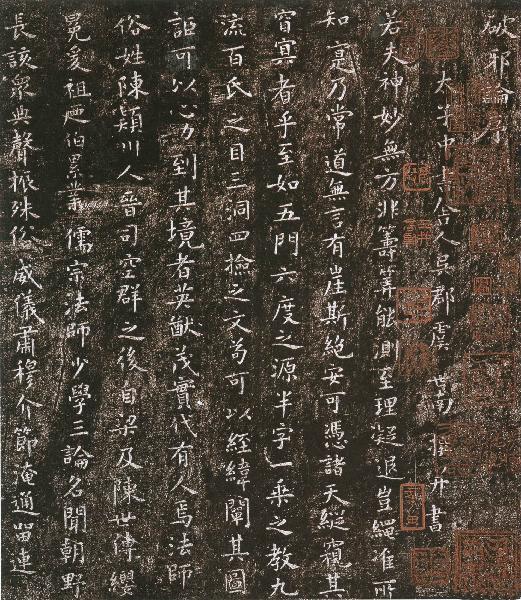 破邪論序
太子中書舍人吳郡虞世南撰并書
若夫神妙無方非籌筭能測至理凝邈豈繩准所
知寔乃常道無言有崖斯絶安可憑諸天縱窺其
窅冥者乎至如五門六度之源半字一乘之教九
流百氏之目三洞四撿之文苟可以經緯闡其圖
詎可以心力到其境者英猷茂實代有人焉法師
俗姓陳頴川人晉司空群之後自梁及陳世傳纓
冕爰祖及伯累業儒宗法師少學三論名聞朝野
長該衆典聲振殊俗威儀肅穆介節淹通留連